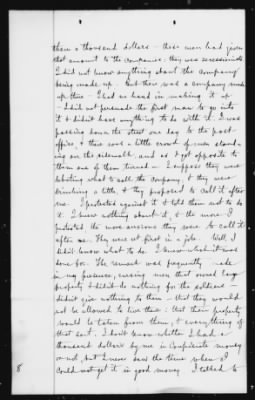 there a thousand dollars - these men had given
that amount to the companies: they was secessionists
I did not know anything about the company
being made up - but there was a company made
up there - I had no hand in making it up
- I did not persuade the first man to go into
it & didn't have anything to do with it. I was
passing down the street one day to the post-
office, & there was a little crowd of men stand-
ing on the sidewalk, and as I got opposite to
them one of them turned - I suppose they were
debating what to call the company, & they were
drinking a little & they proposed to call it after
me. I protested against it & told them not to do
it. I knew nothing about it, & the more I
protested the more anxious they were to call it
after me. They were at first in a joke. Well, I
didn't know what to do. I knew what it was
done for. The remark was frequently made
in my presence, cursing men that owned large
property & didn't do nothing for the soldiers -
didn't give nothing to them - that they would
not be allowed to live there: that their property
would be taken from them, & everything of
that sort. I don't know whether I had a
thousand dollars by me in Confederate money
or not, but I never saw the time when I
could not get it in good money. I talked to
8